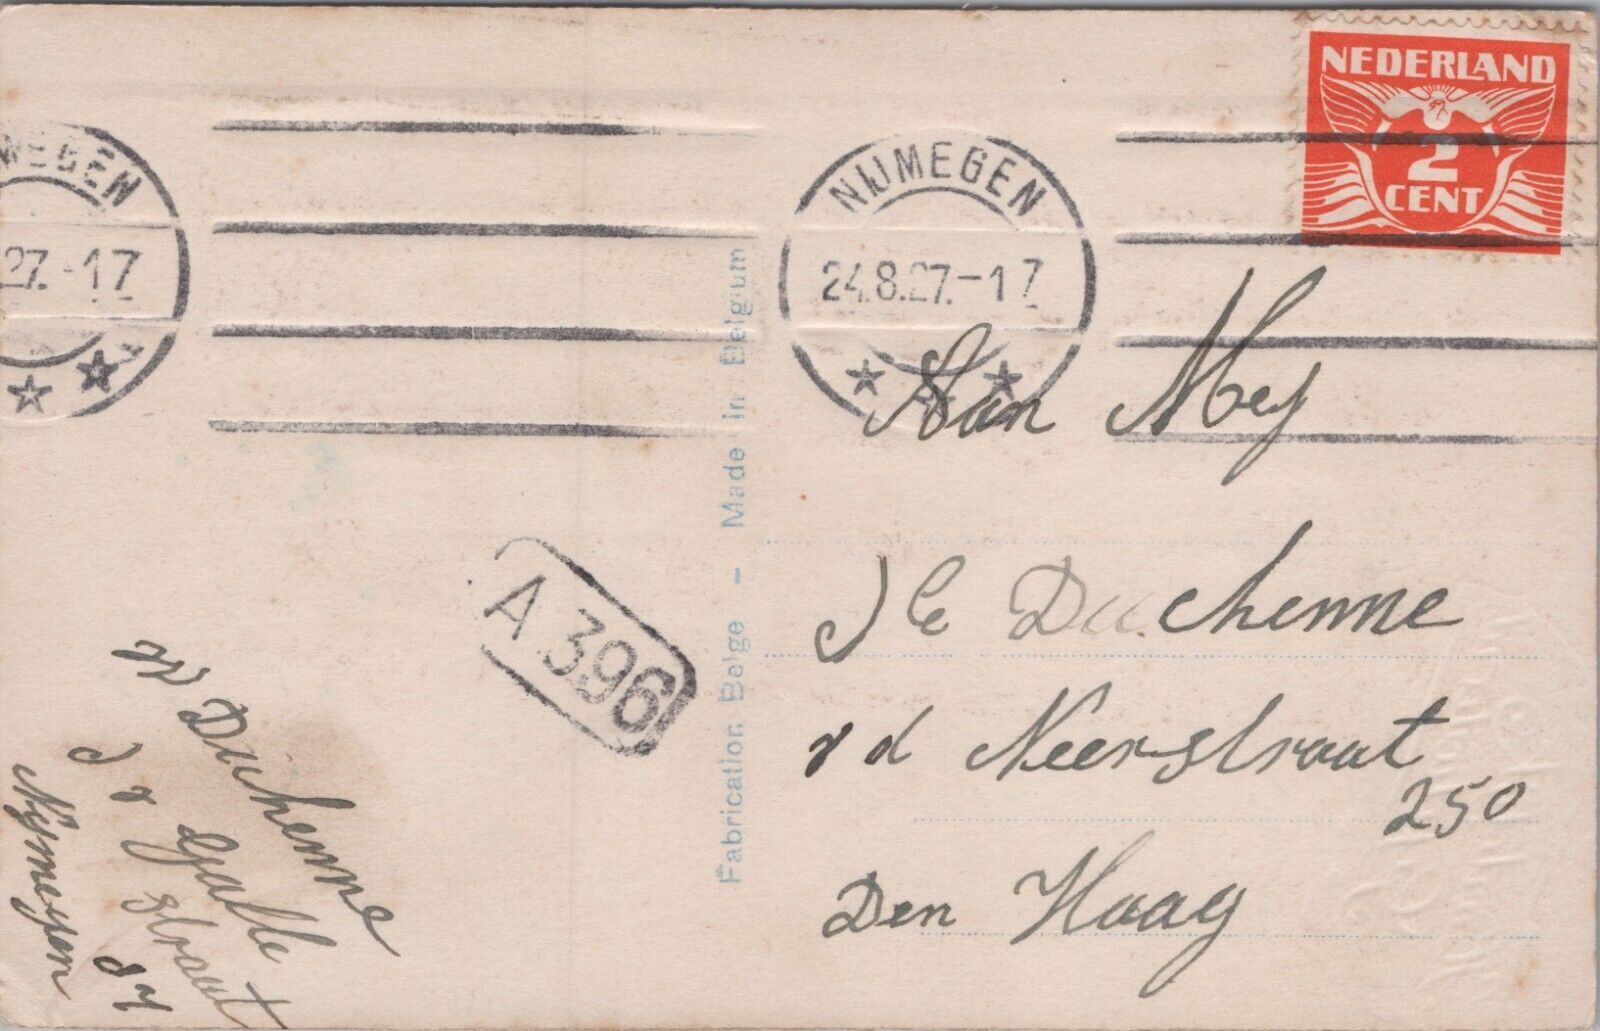 NEDERLAND
2
CENT
NIJMEGEN
24.8.27.-17
WEGEN
27.-17
Aan Mej
Duchenne
v d Neerstraat
250
Den Haag
A 396
Fabrication Belge - Made in Belgium
W Duchenne
J v Galle
straat
87
Nijmegen